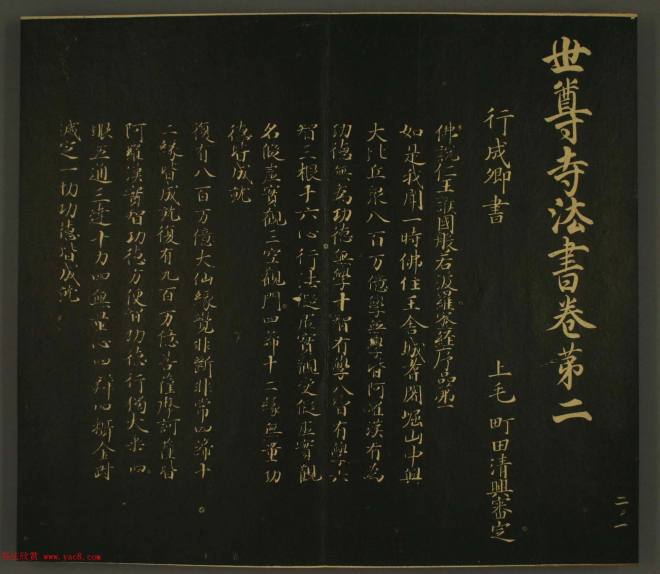 世尊寺法書卷第二
行成卿書
上毛 町田清興審定
佛說仁王護國般若波羅蜜經序品第一
如是我聞一時佛住王舍城耆闍崛山中與
大比丘眾八百万億學無學皆阿羅漢有為
功德無為功德無學十智有學八智有學六
智三根十六心行法假虛實觀受假虛實觀
名假虛實觀三空觀門四諦十二緣無量功
德皆成就
復有八百万億大仙緣覺非斷非常四諦十
二緣皆成就復有九百万億菩薩摩訶薩皆
阿羅漢實智功德方便智功德行獨大乘四
眼五通三達十力四無量心四辯四攝金剛
滅定一切功德皆成就
二ノ一
書法欣賞 www.yac8.com